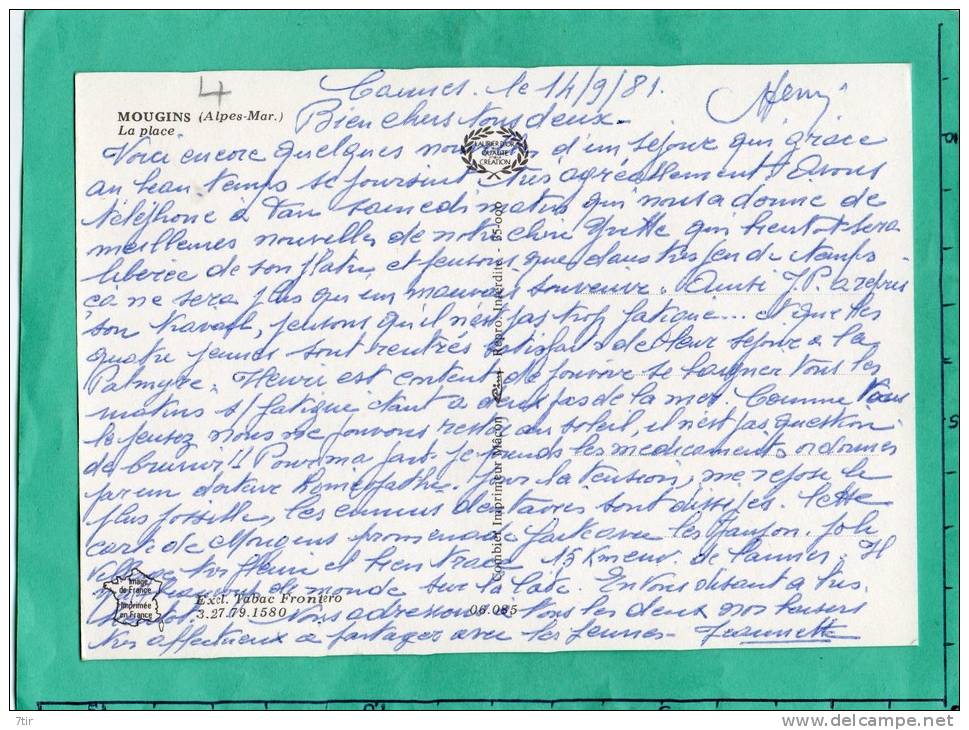 4
Cannes. le 14/9/81.
Henri
MOUGINS (Alpes-Mar.)
La place
Bien chers tous deux.
LAURIER D'OR
QUALITÉ
CRÉATION
Voici encore quelques d'un séjour qui grâce
au beau temps se poursuit très agréablement! Avons
téléphoné à samedi matin qui nous a donné de
meilleures nouvelles de notre chère qui bientôt sera
libérée de son plâtre, et pensons que dans très peu de temps
ça ne sera plus qu'un mauvais souvenir. Aussi J.P. a repris
son travail, pensons qu'il n'est pas trop fatigué... et que les
quatre jeunes sont rentrés satisfaits de leur séjour à la
Palmyre. Henri est content de pouvoir se baigner tous les
matins s/ fatigue, étant à deux pas de la mer. Comme vous
le pensez nous ne pouvons rester au soleil, il n'est pas question
de brunir!! Pour ma part je prends les médicaments ordonnés
par un docteur homéopathe. pour la tension, me repose le
plus possible, les ennuis dentaires sont dissipés. Cette
carte de Mougins promenade faite avec les joli
village très fleuri et bien tracé 15 Km env. de Cannes. Il
sur la Côte. En vous disant à très
Vous adressons à tous les deux nos baisers
très affectueux à partager avec les jeunes- Jeannette
Combier Imprimeur Mâcon Repro. Interdite - 35-000
Image
de France
Imprimée
en France
Excl. Tabac Frontero
3.27.79.1580
06.085
7tir
delcampe.net